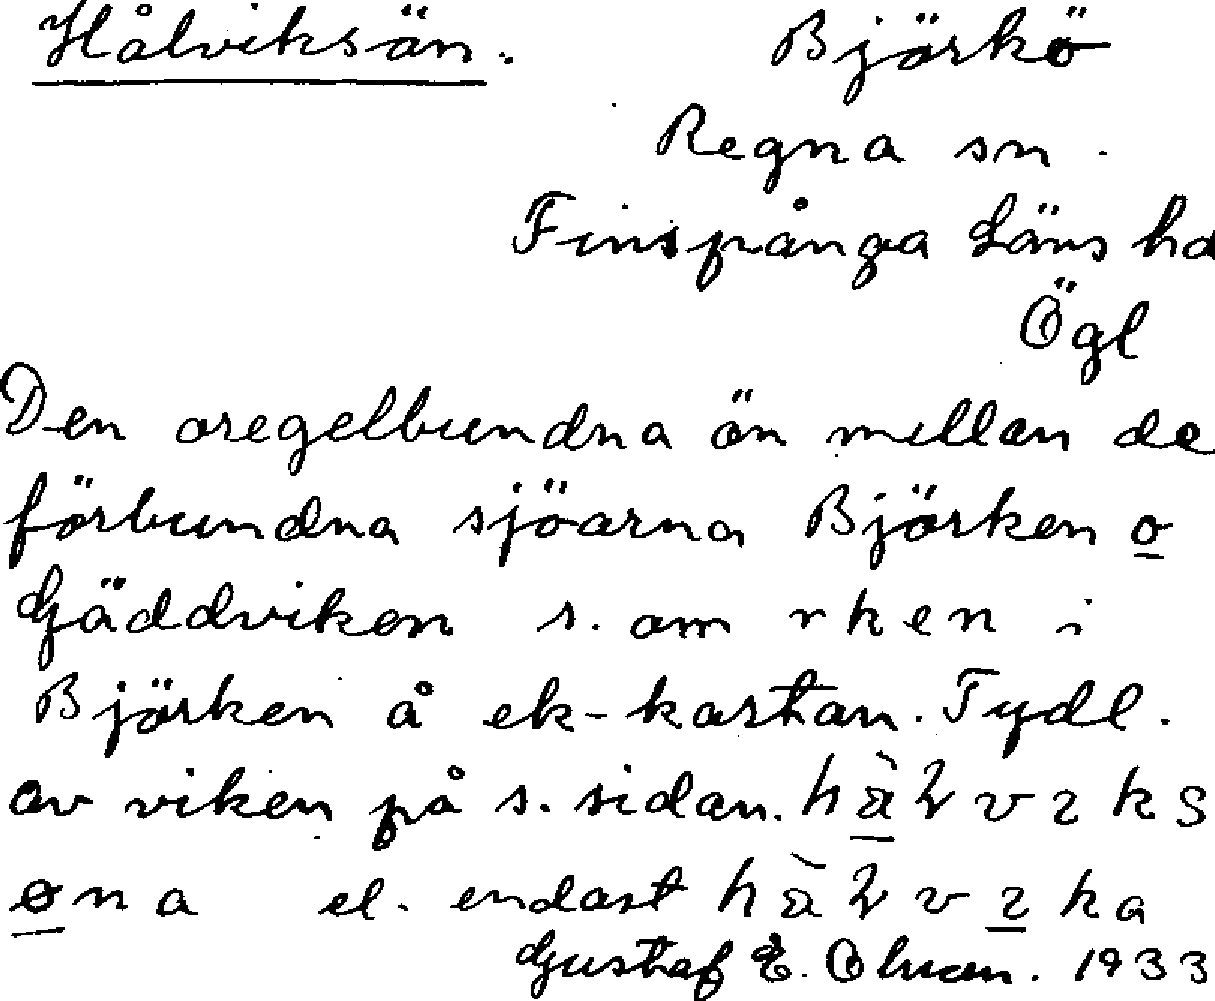 Hålviksän. Björkö
Regna sn.
Finspånga Läns hd
Ögl
Den oregelbundna ön mellan de
förbundna sjöarna Björken o
Gäddviken s. om rken i
Björken å ek-kartan. Tydl.
av viken på s. sidan.
el. endast
Gustaf E. Ohman. 1933